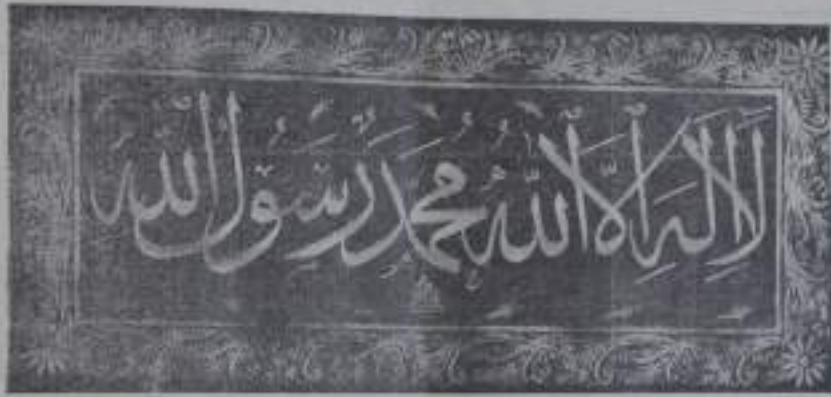 لَا إِلَٰهَ إِلَّا اللَّهُ مُحَمَّدٌ رَسُولُ اللَّهِ